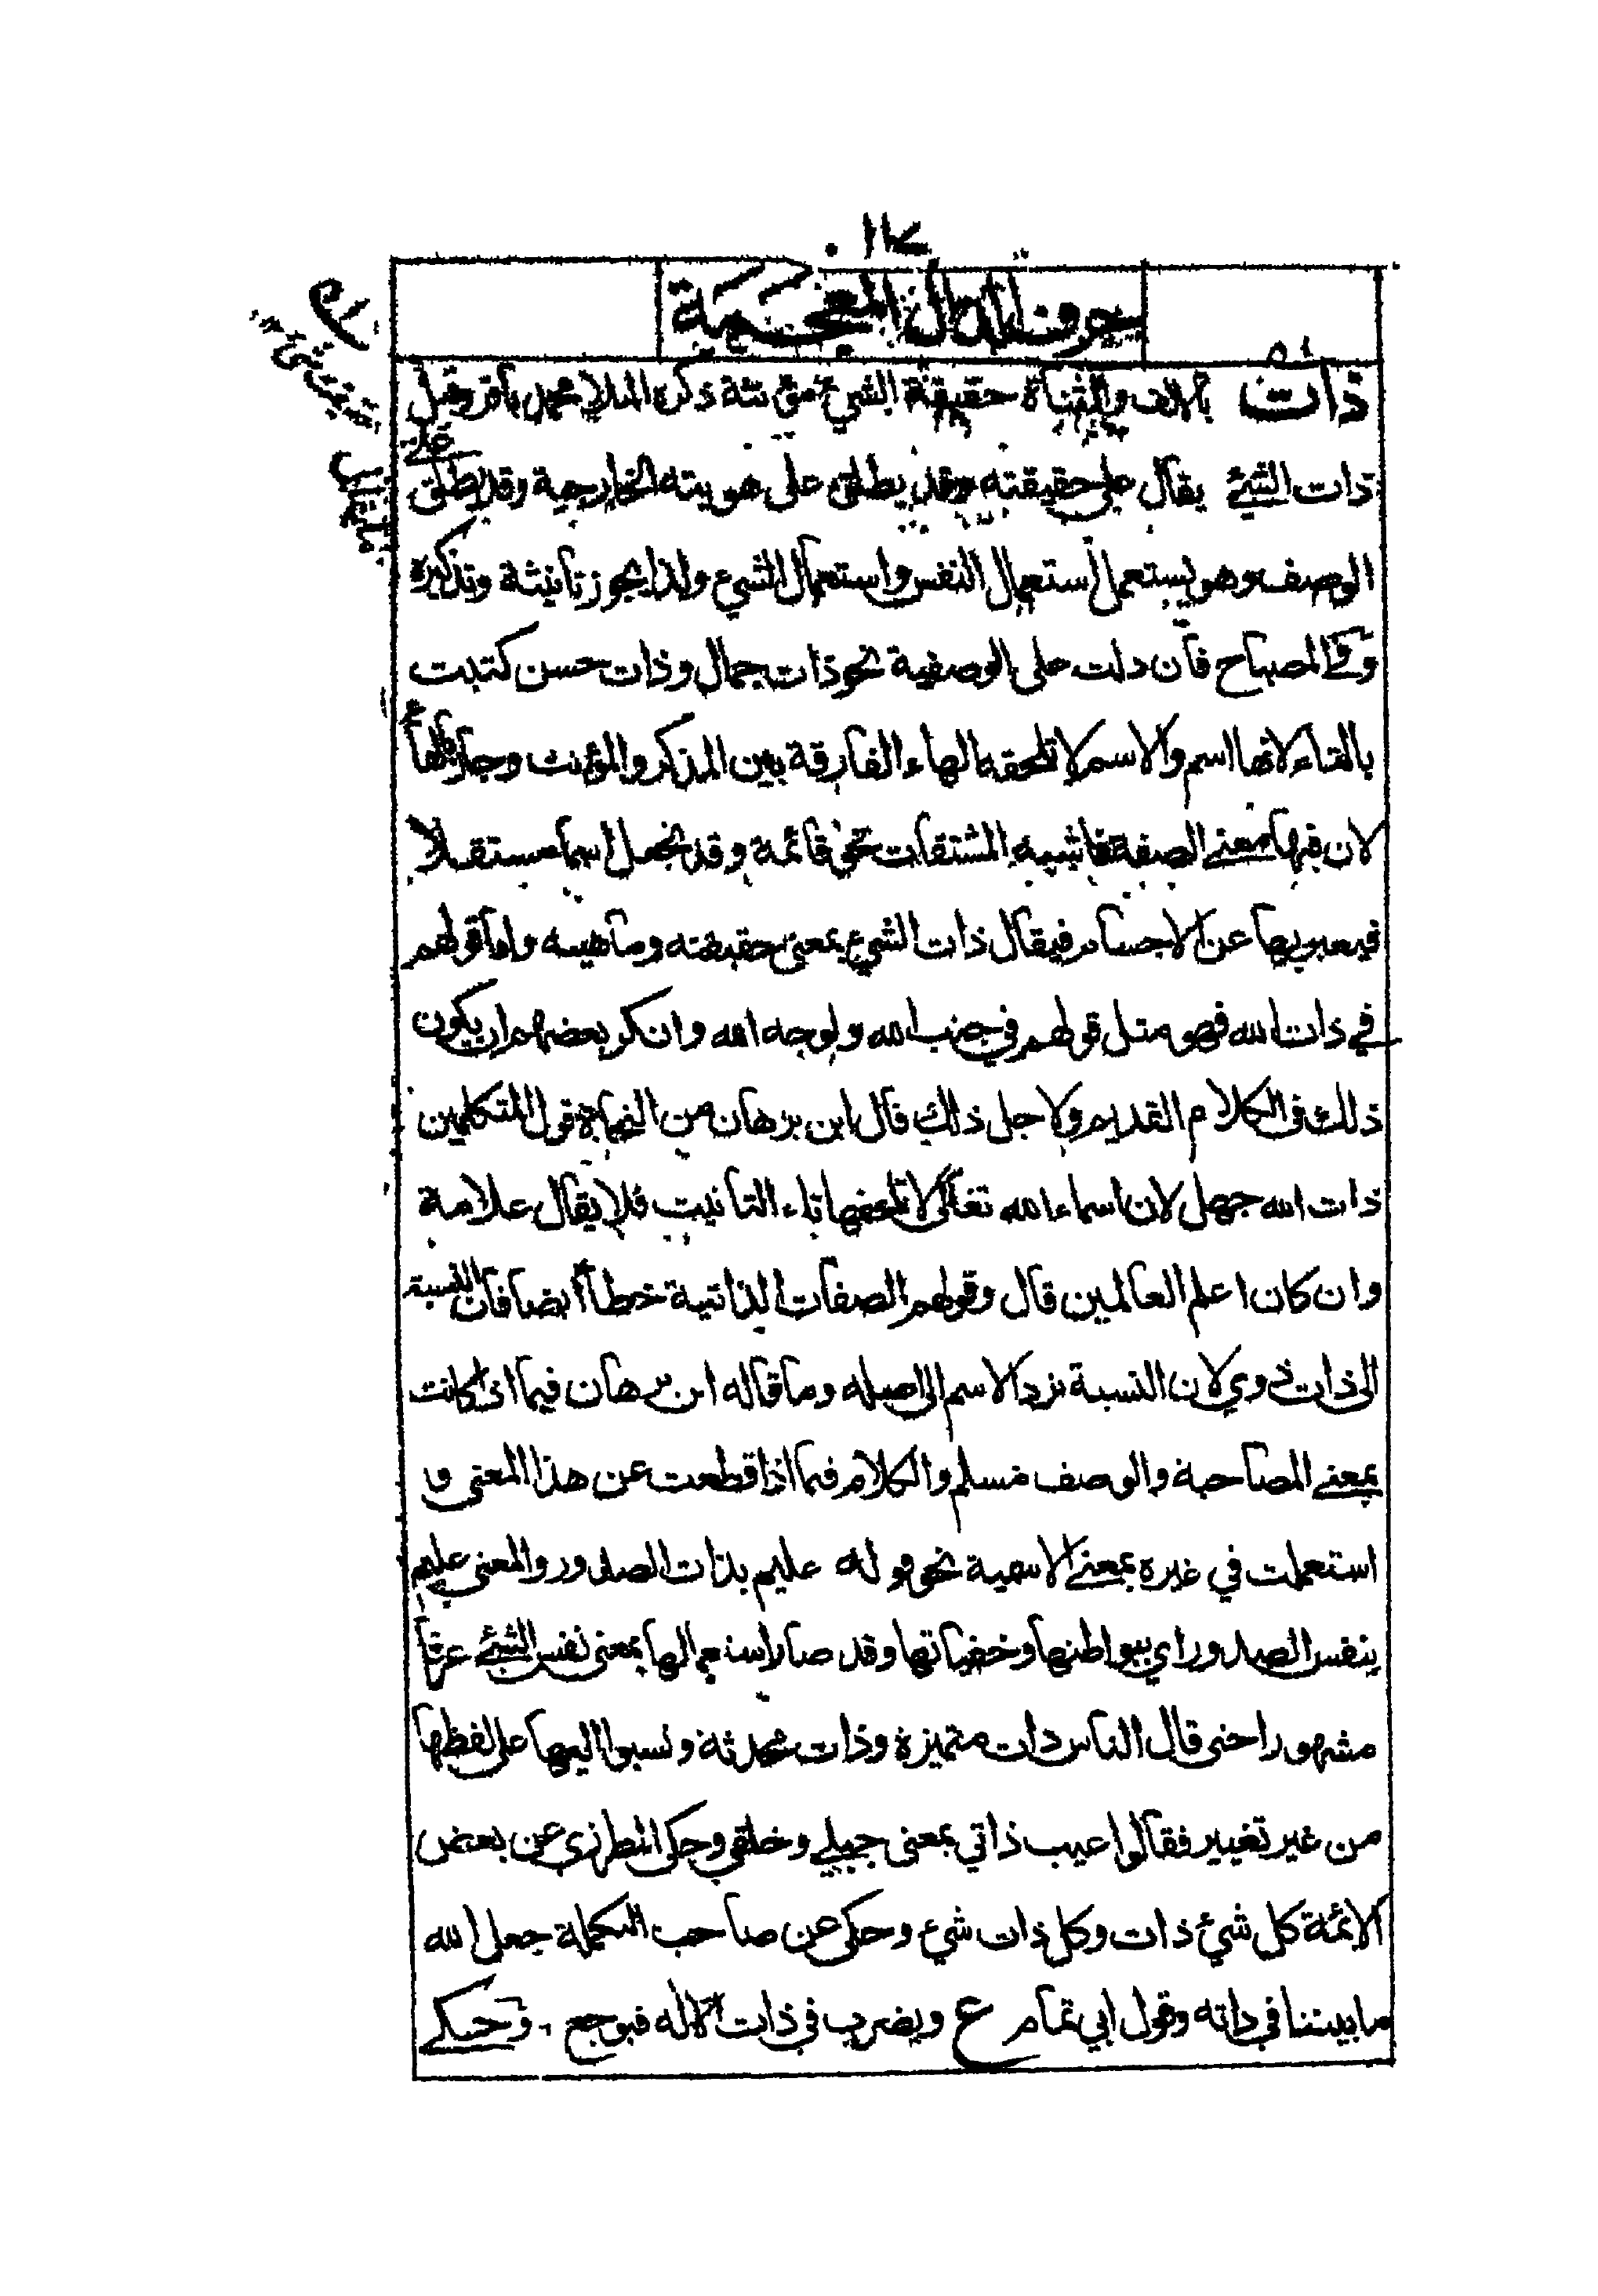 ١١٧
حرف الذال المعجمة
ذات بالالف والمثناة حقيقة الشئ مؤنثة ذكره الملا محمد باقر وقيل
ذات الشئ يقال على حقيقته وقد يطلق على هويته الخارجية وقد يطلق على
الوصف وهو يستعمل استعمال النفس واستعمال الشئ ولذا يجوز تانيثة وتذكيره
وفي المصباح فان دلت على الوصفية نحو ذات جمال وذات حسن كتبت
بالتاء لانها اسم والاسم لا تلحقه الهاء الفارقة بين المذكر والمؤنث وجاز بالهاء
لان فيها معنى الصفة فاشبه المشتقات نحو قائمة وقد تجعل اسما مستقلا
فيعبر بها عن الاجسام فيقال ذات الشئ بمعنى حقيقته وماهيته واما قولهم
في ذات الله فهو مثل قولهم في جنب الله ولوجه الله وانكر بعضهم ان يكون
ذلك في الكلام القديم ولاجل ذلك قال ابن برهان من النحاة قول المتكلمين
ذات الله جهل لان اسماء الله تعالى لا تلحقها تاء التانيث فلا يقال علامة
وان كان اعلم العالمين قال وقولهم الصفات الذاتية خطأ ايضا فان النسبة
الى ذات ذوي لان النسبة ترد الاسم الى اصله وما قاله ابن برهان فيما اذا كانت
بمعنى المصاحبة والوصف مسلم والكلام فيما اذا قطعت عن هذا المعنى و
استعملت في غيره بمعنى الاسمية نحو قوله عليم بذات الصدور والمعنى عليم
بنفس الصدور اي ببواطنها وخفياتها وقد صار استعمالها بمعنى نفس الشئ عرفا
مشهورا حتى قال الناس ذات متميزة وذات محدثة ونسبوا اليها على لفظها
من غير تغيير فقالوا عيب ذاتي بمعنى جبلي وخلقي وحكى المطرزي عن بعض
الائمة كل شئ ذات وكل ذات شئ وحكى عن صاحب التكملة جعل الله
ما بيننا في ذاته وقول ابي تمام ع ويضرب في ذات الاله فيوجع ، وحكى